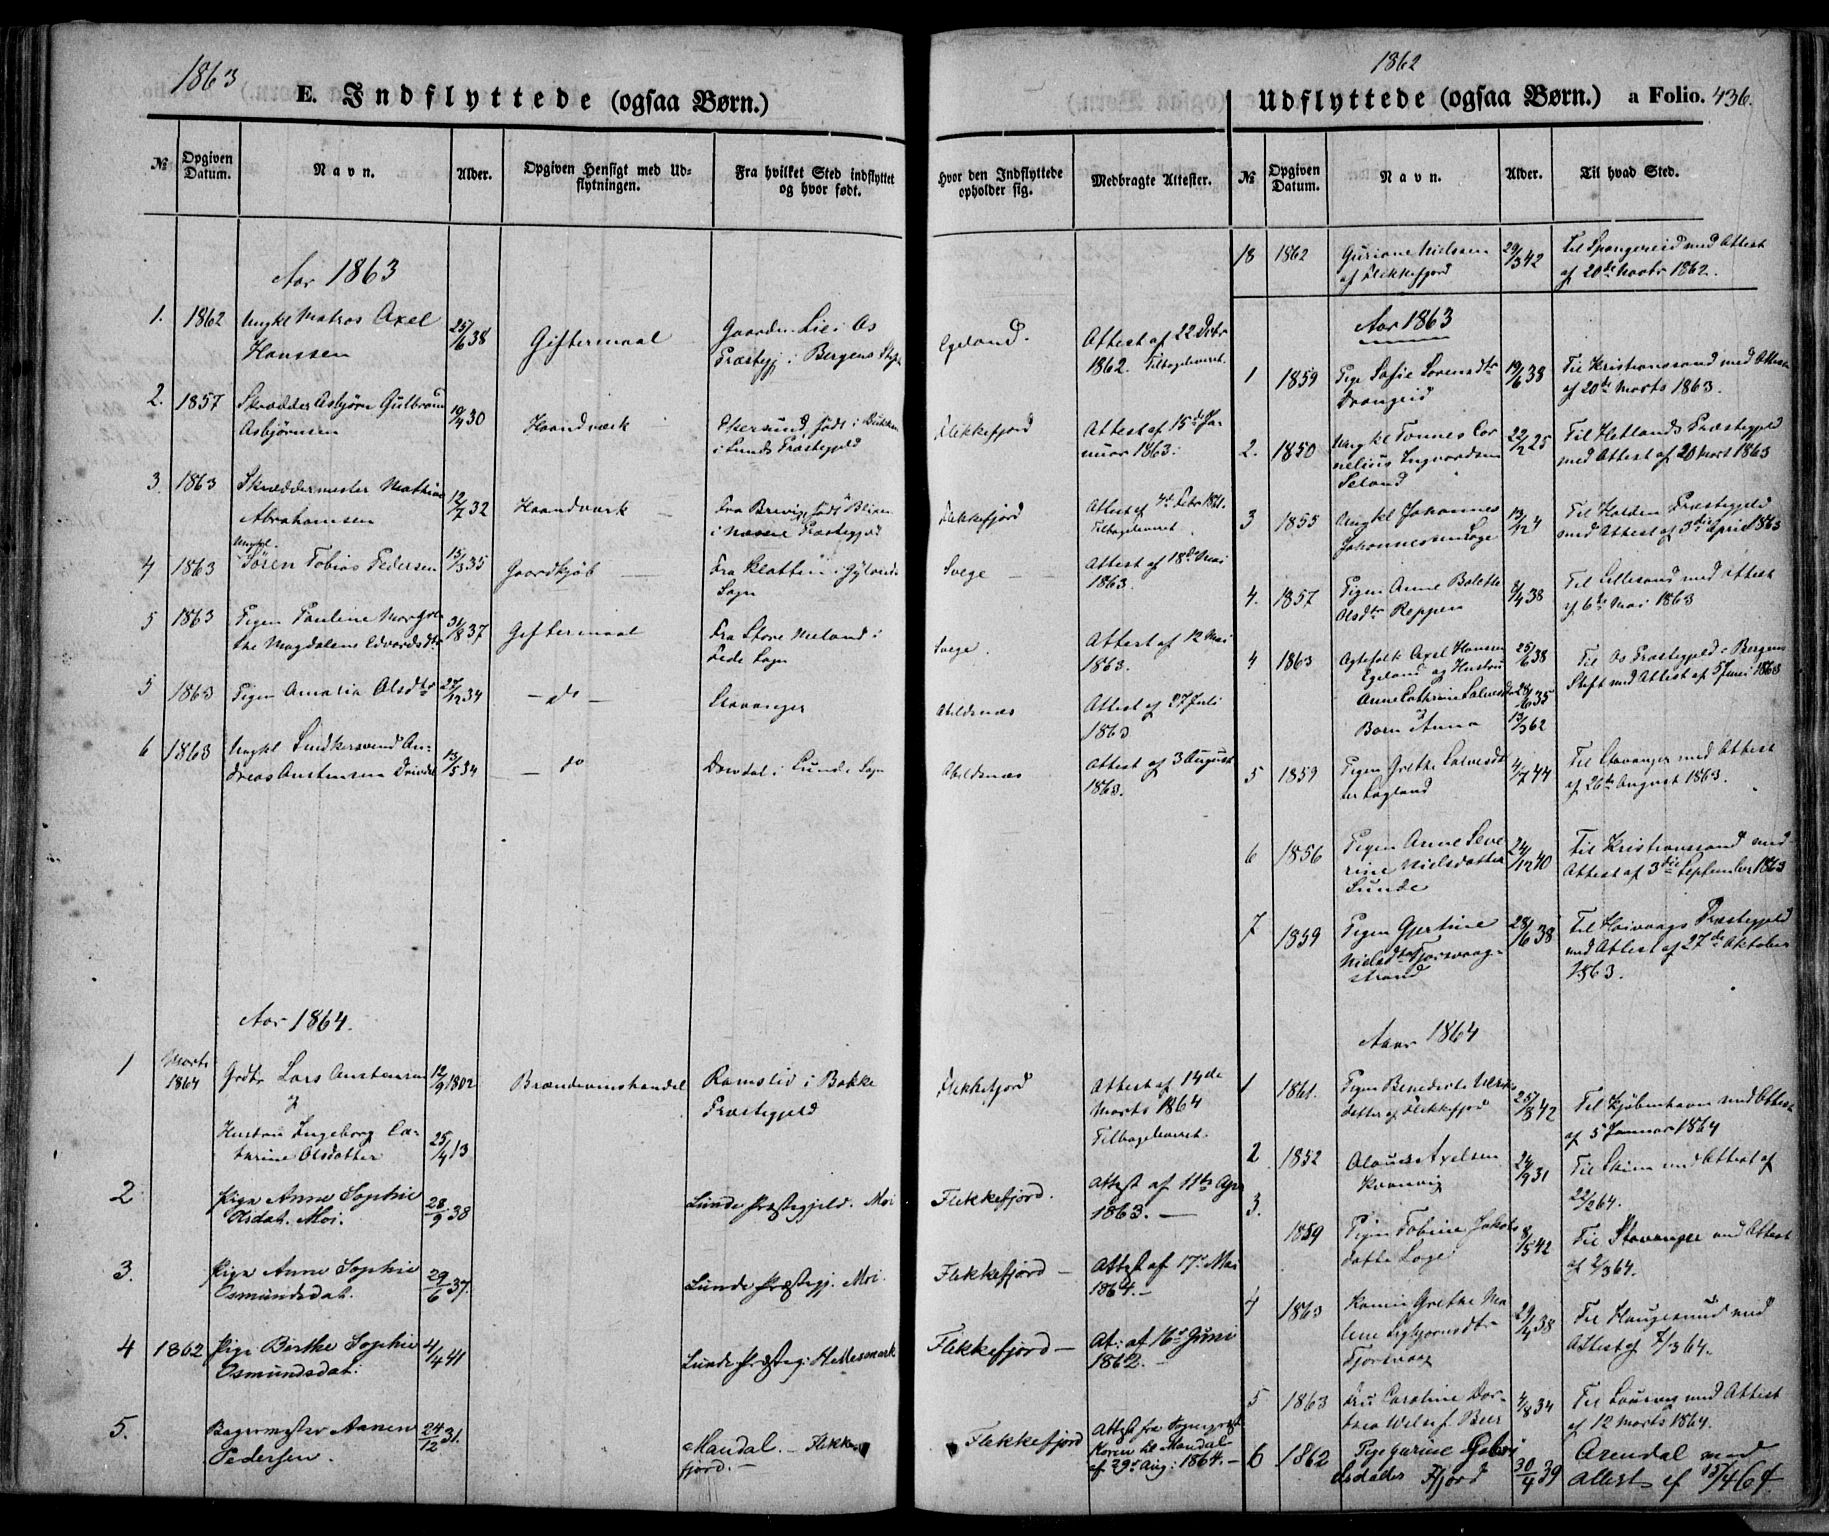 1863
E. Indflyttede (ogsaa Børn.)
№
Opgiven Datum.
Navn.
Alder.
Opgiven Hensigt med Udflytningen.
Fra hvilket Sted indflyttet og hvor født.
Hvor den Indflyttede opholder sig.
Medbragte Attester.
Aar 1863
1. 1862 Ungkl Matros Axel 25/6 38 Giftermaal Gaarden Lie i Os Egeland. Attest af 22 Dcbr
Hanssen Præstegj. i Bergens Stift 1862. Tilbageleveret.
2. 1857 Skrædder Asbjørn Gulbrand 19/4 30 Haandværk Ekersund født i Flekkefjord Attest af 15de Ja-
Asbjørnsen i Lunds Præstegjeld nuar 1863.
3. 1863 Skræddermester Mathias 12/7 32 Haandværk Fra Brevig født Flekkefjord Attest af 4de Febr 1861.
Abrahamsen i Præstegjeld Tilbageleveret.
4 1863 Ungkl. Søren Tobias Pedersen 15/3 35 Gaardkjøb Fra i Gylands Svege Attest af 18de Mai
Sogn 1863.
5 1863 Pigen Pauline Margre- 31/8 37 Giftermaal Fra Store Meland i Svege. Attest af 12 Mai
the Magdalena Edvardsdtr Fede Sogn 1863.
5 1863 Pigen Amalia Olsdtr 27/12 34 — do — Stavanger Abildsnæs Attest af 27 Juli
1863
6 1863 Ungkl Andkersvend An- 13/5 34 — do Drivdal i Lunde Sogn Abildsnæs Attest af 3 August
dreas Austensen Drivdal 1863.
Aar 1864.
1 Marts 1864 Grdbr Lars Austensen 12/9 1802 Brændevinshandel Ramslid i Bakke Flekkefjord Attest af 14de
& Præstegjeld Marts 1864
Hustru Ingeborg Ca- 25/4 13 Tilbageleveret.
tarine Olsdatter
2 Pige Anne Sophie 28/9 38 Lunde Præstegjeld. Moi Flekkefjord. Attest af 11te Apr
Olsdat. Moi. 1863. —
3. Pige Anne Sophie 29/6 37. Lunde Præstegj. Moi. Flekkefjord — Attest af 17de Mai
Osmundsdat. 1864. —
4 1862 Pige Berthe Sophie 4/4 41 Lunde Præsteg: Hellesmark Flekkefjord — At: af 16de Juni
Osmundsdat. 1862. —
5. Bagermester Aanen 24/12 31. Mandal. — Flekke- Flekkefjord Attest fra Sognepræst
Pedersen. fjord. — Koren til Mandal
af 29de Aug: 1864. —
1862
Udflyttede (ogsaa Børn.) a Folio. 436.
№
Opgiven Datum.
Navn.
Alder.
Til hvad Sted.
18 1862 Guriane Nielsen 29/3 42 Til Spangereid med Attest
af Flekkefjord af 20de Novbr 1862.
Aar 1863
1 1859 Pige Sofie Sørensdtr 19/6 38 Til Kristianssand med Attest
Drangeid af 20de Marts 1863.
2. 1850 Ungkl Tønnes Cor- 22/2 25 Til Hetlands Præstegjeld
nelius Ingvardsen med Attest af 20 Marts 1863
Seland
3 1855 Ungkl Johannes 13/12 4 Til Halden Præstegjeld
Johannessen Loge med Attest af 3die April 1863
4. 1857 Pigen Anne Bolette 9/4 38 Til Lillesand med Attest
Olsdtr Reppen af 6te Mai 1863
4 1863 Egtefolk Axel Hansen 25/6 38 Til Os Præstegjeld i Bergens
Egeland og Hustru Stift med Attest af 5 Juni 1863
Anne Cathrine Salvesdtr 28/6 35
& Barn Anna 13/3 62
5 1859 Pigen Grethe Salvesdt- 4/7 44 Til Stavanger med Attest
ter Lagland af 26de August 1863.
6 1856 Pigen Anne Seve- 24/12 40 Til Kristianssand med
rine Nielsdatter Attest af 3die September 1863
Sunde
7 1859 Pigen Gjertine 28/6 38 Til Høivaags Præstegjeld
Nielsdtr Fjorsvaag- med Attest af 27de Oktober
strand 1863.
Aar 1864
1 1861. Pigen Benedicte 25/8 42 Til Kjøbenhavn med Attest
datter af Flekkefjord af 5 Januar 1864
2 1852 Olaus Axelsen 24/9 31 Til Skien med Attest af
Kvanvig 22/2 64.
3. 1859 Pigen Tobine Jakobs- 8/5 42 Til Stavanger med Attest
datter Loge af 2/3 64.
4 1863 Konen Grethe Ma- 29/4 38 Til Haugesund med
lene Sigbjørnsdtr Attest af 7/3 64.
Fjorsvaag
5 1863 Fru Caroline Dor- 4/8 34 Til Laurvig med Attest
thea f. Beer af 12 Marts 1864.
6 1862 Pige Gurine Gabri- 30/4 39 Arendal med
elsdatter Fjord Attest af 15/4 64.